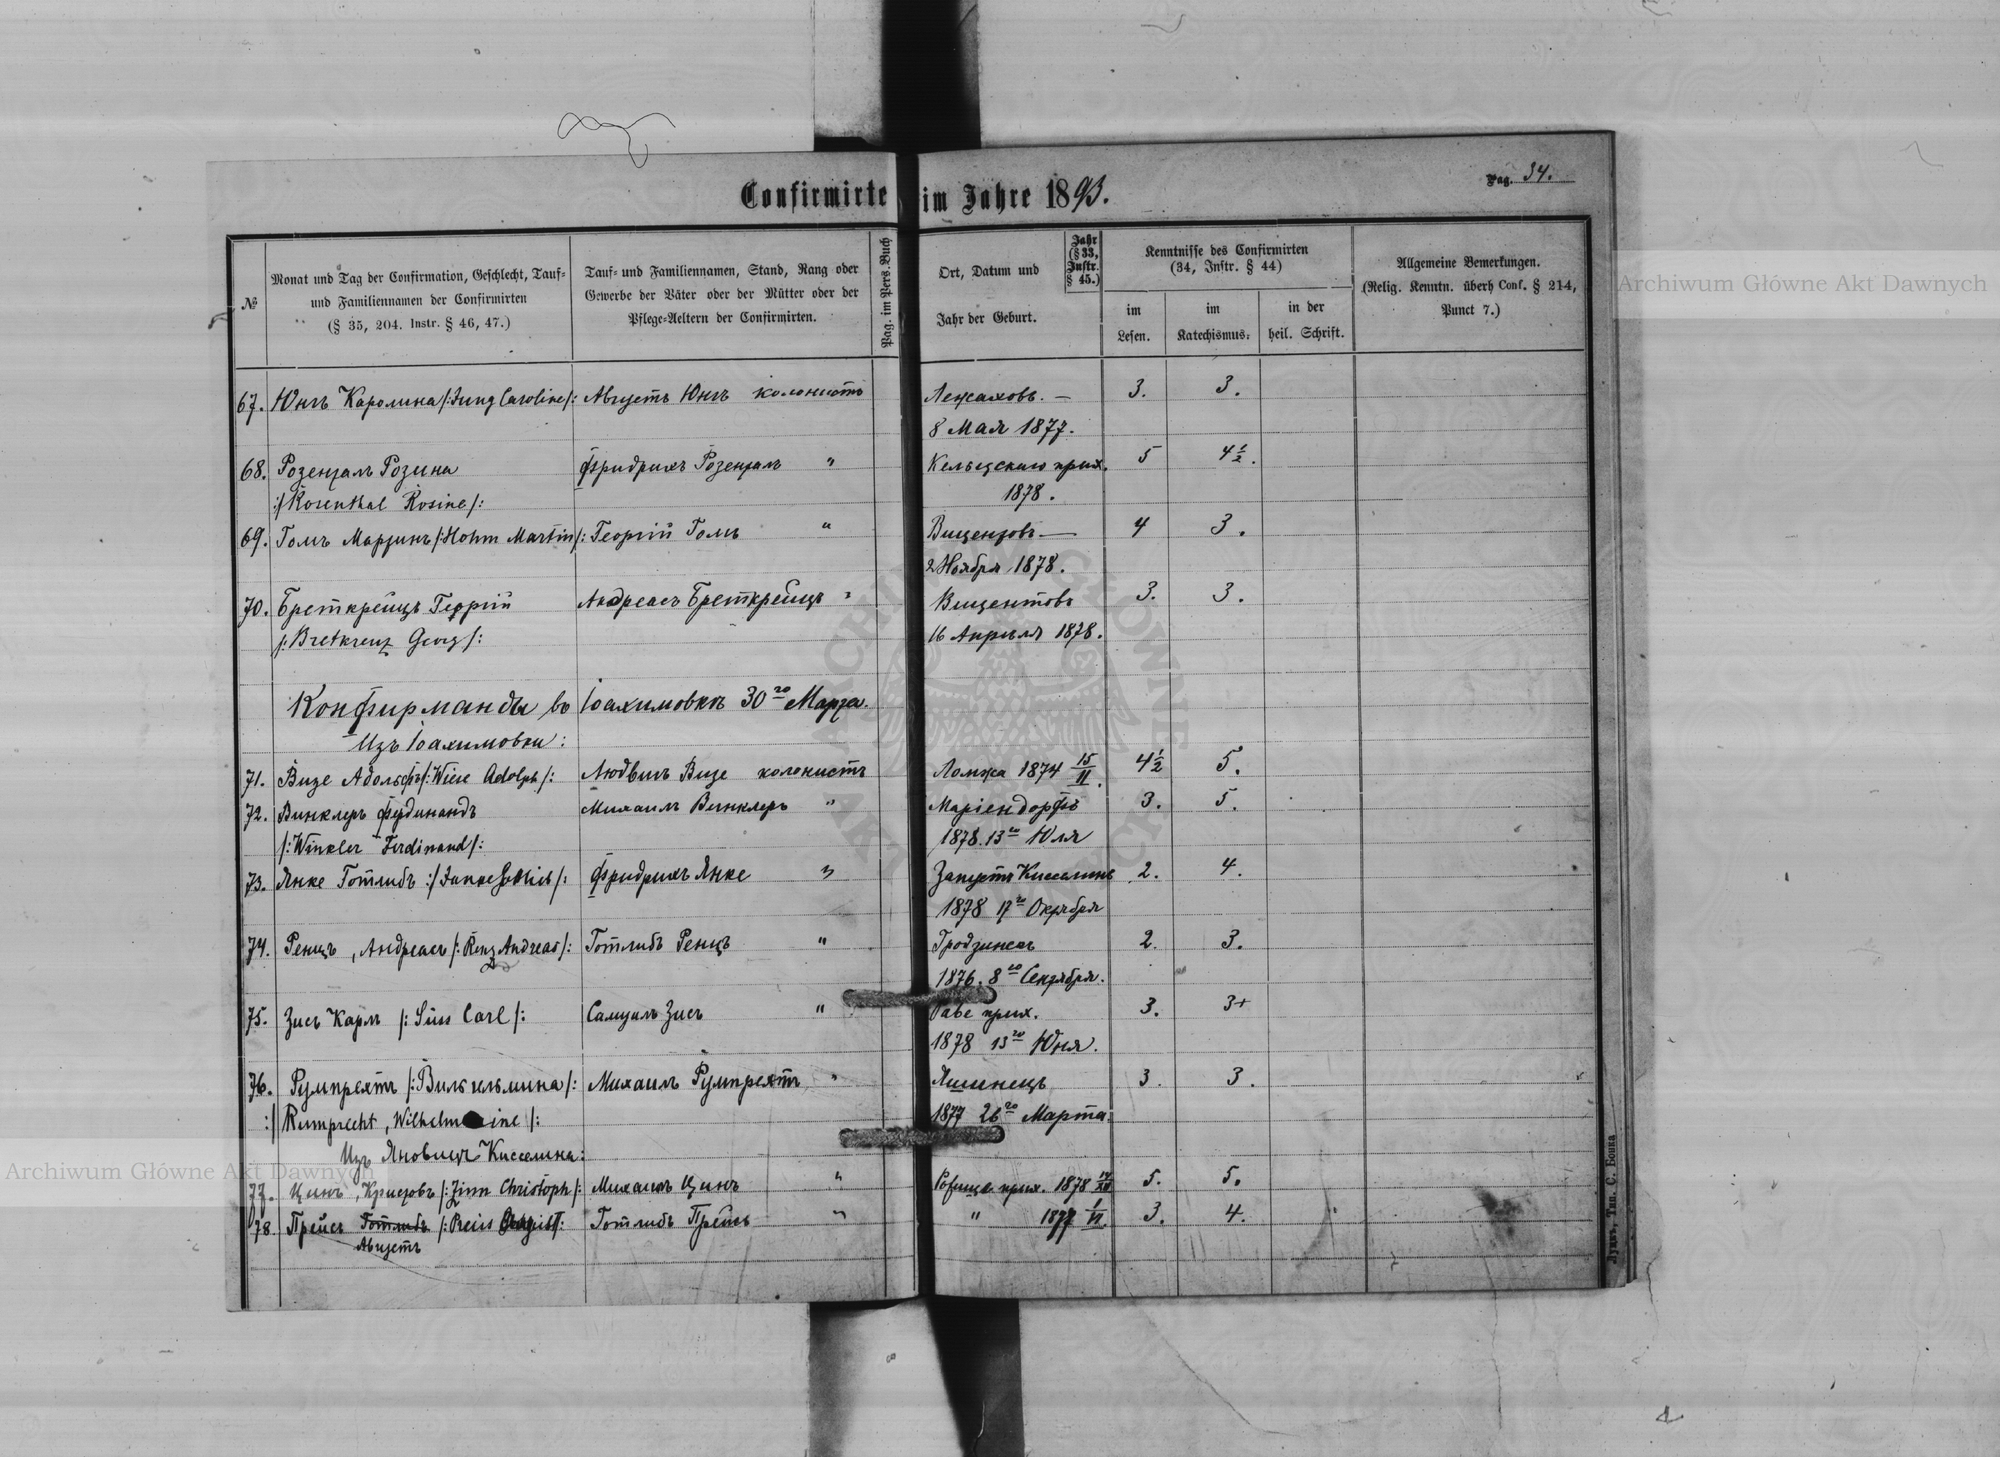 Confirmirte im Jahre 1893.
Pag. 34.
№
Monat und Tag der Confirmation, Geschlecht, Tauf-
und Familiennamen der Confirmirten
(§ 35, 204. Instr. § 46, 47.)
Tauf- und Familiennamen, Stand, Rang oder
Gewerbe der Väter oder der Mütter oder der
Pflege-Aeltern der Confirmirten.
Pag. im Pers. Buch
Ort, Datum und
Jahr der Geburt.
Jahr
(§ 33,
Instr.
§ 45.)
Kenntnisse des Confirmirten
(34, Instr. § 44)
im
Lesen.
im
Katechismus.
in der
heil. Schrift.
Allgemeine Bemerkungen.
(Relig. Kenntn. überh Conf. § 214,
Punct 7.)
67. Юнгъ Каролина /:Jung Caroline/: Августъ Юнгъ колонистъ Лежаховъ. — 3. 3.
8 Мая 1877.
68. Розенталъ Розина Фридрихъ Розенталъ " Кельецкаго прих. 5 4½.
:/Rosenthal Rosine/: 1878.
69. Гомъ Мартинъ /:Hohm Martin/: Георгій Гомъ " Вицентовъ — 4 3.
2 Ноября 1878.
70. Бреткрейцъ Георгій Андреасъ Бреткрейцъ " Вицентовъ 3. 3.
/:Bretkreuz Georg/: 16 Апреля 1878.
Конфирманды во Іоахимовкѣ 30го Марта.
Изъ Іоахимовки:
71. Визе Адольфъ /:Wiese Adolph/: Людвигъ Визе колонистъ Ломжа 1874 15/II. 4½ 5.
72. Винклеръ Фердинандъ Михаилъ Винклеръ " Маріендорфъ 3. 5.
/:Winkler Ferdinand/: 1878. 13го Юля
73. Янке Готлибъ :/Janke Gottlieb/: Фридрихъ Янке " Запустъ Киселинъ 2. 4.
1878 17го Октября
74. Ренцъ, Андреасъ /:Renz Andreas/: Готлибъ Ренцъ " 2. 3.
1876. 8го Сентября.
75. Зисъ Карлъ /: Süss Carl /: Самуилъ Зисъ " Раве прих. 3. 3+
1878 13го Юня.
76. Румпрехтъ /:Вильгельмина/: Михаилъ Румпрехтъ " Яминецъ 3. 3.
:/ Rumprecht, Wilhelmine /: 1877 26го Марта.
Изъ Яновицъ Киселина:
77. Цинъ, Кристовъ /:Zinn Christoph/: Михаилъ Цинъ " прих. 1878 5. 5.
78. Прейсъ Готлибъ /:Preiss August/: Готлибъ Прейсъ " " 1877 3. 4.
Августъ
Луцкъ, Тип. С. Бонка
Archiwum Główne Akt Dawnych
Archiwum Główne Akt Dawnych